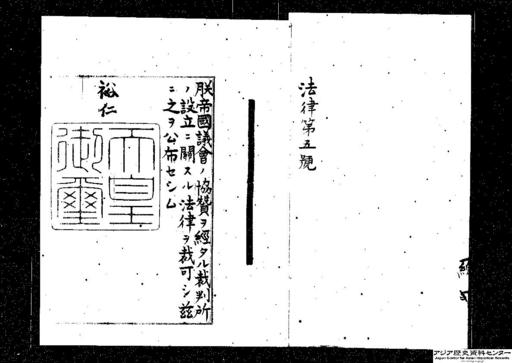 法律第五號
朕帝國議會ノ協贊ヲ經タル裁判所
ノ設立ニ關スル法律ヲ裁可シ茲
ニ之ヲ公布セシム
裕仁
天皇
御璽
アジア歴史資料センター
Japan Center for Asian Historical Records